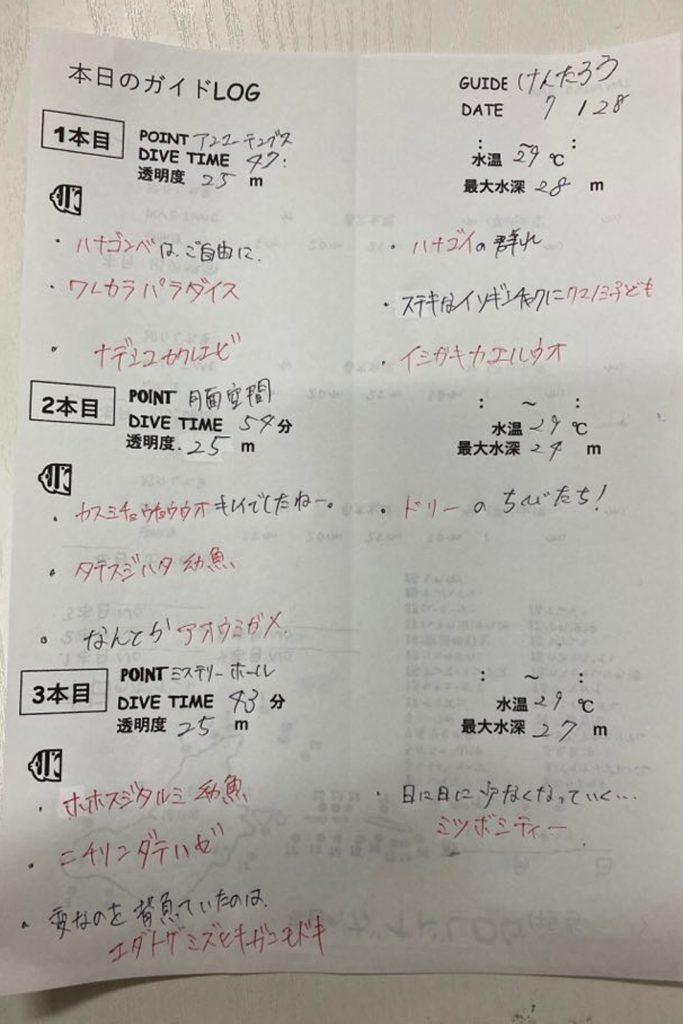 本日のガイドLOG
GUIDE けんたろう
DATE 7 / 28
1本目
POINT アンユーチングス
DIVE TIME 47:
透明度 25 m
: ~ :
水温 29 ℃
最大水深 28 m
・ハナゴンベは、ご自由に.
・ワレカラパラダイス
・ナデシコカクレエビ
・ハナゴイの群れ
・ステキなイソギンチャクにクマノミ子ども
・イシガキカエルウオ
2本目
POINT 月面空間
DIVE TIME 54分
透明度. 25 m
: ~ :
水温 29 ℃
最大水深 24 m
・カスミチョウチョウウオ キレイでしたねー。
・タテスジハタ 幼魚
・なんとか アオウミガメ
・ドリーの ちびたち!
3本目
POINT ミステリーホール
DIVE TIME 43 分
透明度 25 m
: ~ :
水温 29 ℃
最大水深 27 m
・ホホスジタルミ 幼魚
・ニチリンダテハゼ
・変なのを 背負ていたのは、
エダトゲミズヒキガニモドキ
・日に日に 少なくなっていく...
ミツボシティー